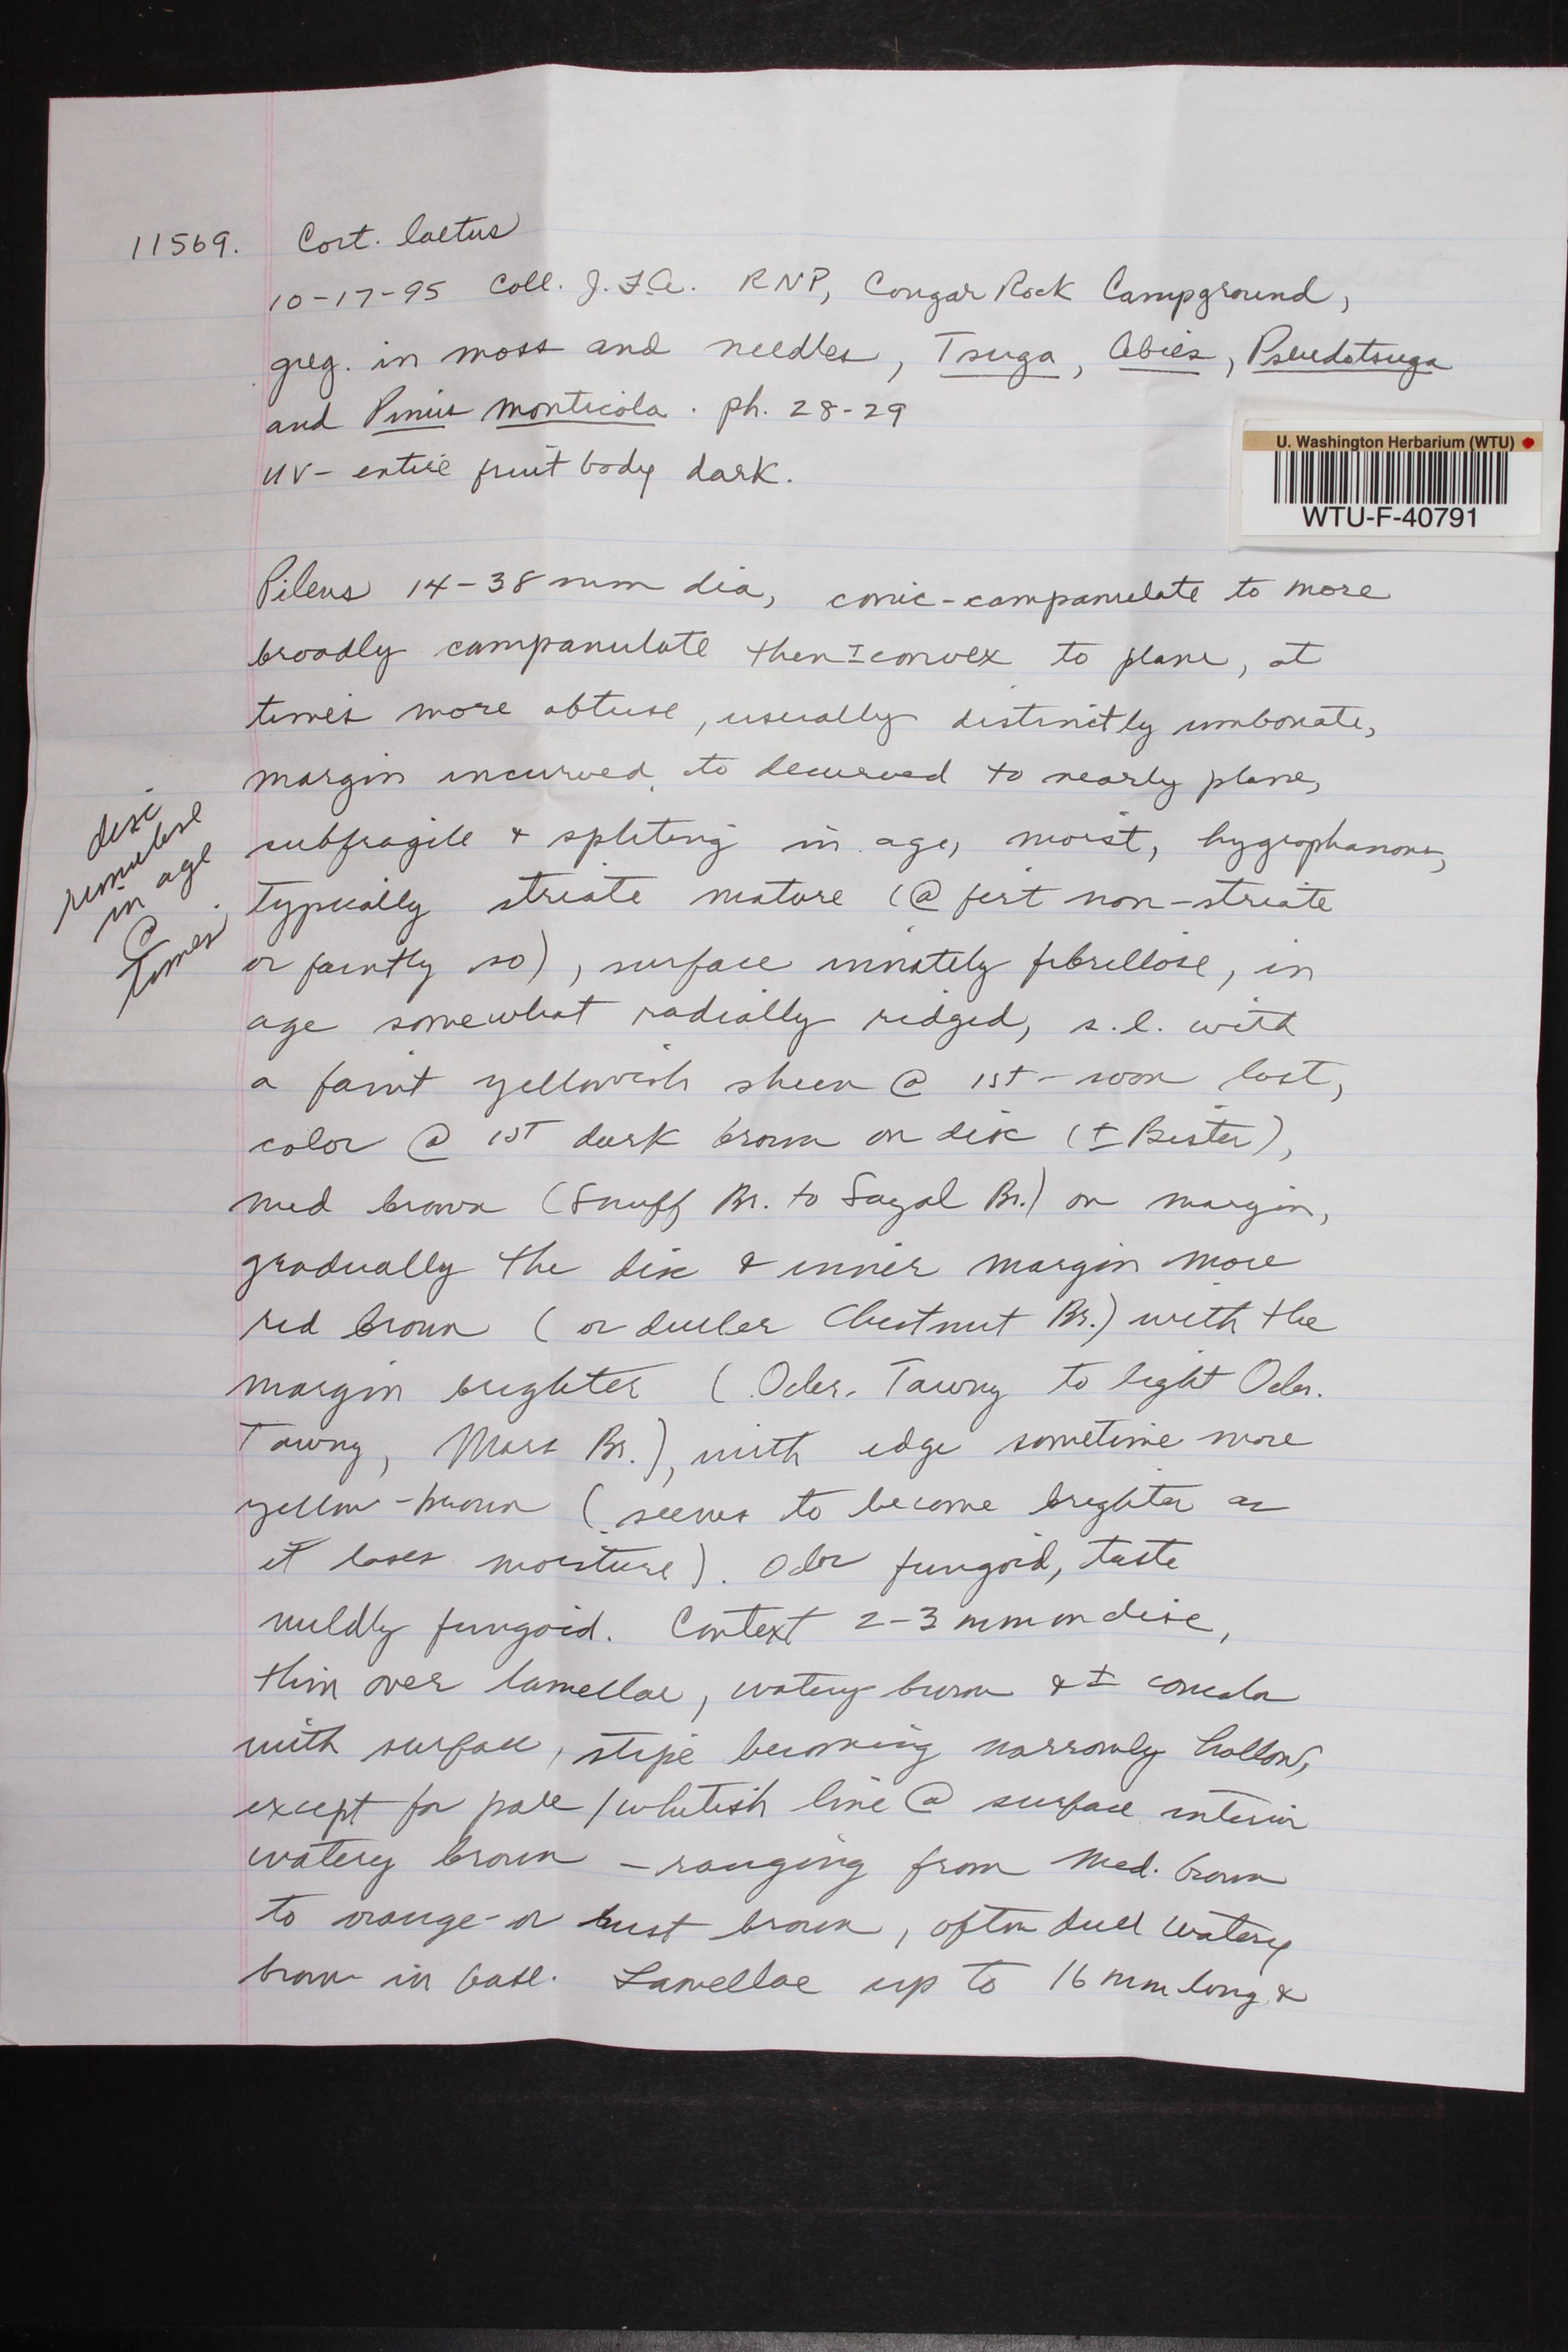 11569. Cort. laetus
10-17-95 Coll. J.F.A. RNP, Cougar Rock Campground,
greg. in moss and needles, Tsuga, Abies, Pseudotsuga
and Pinus monticola. ph. 28-29
UV- entire fruit body dark.
U. Washington Herbarium (WTU)
WTU-F-40791
Pileus 14-38 mm dia, conic-campanulate to more
broadly campanulate then ± convex to plane, at
times more obtuse, usually distinctly umbonate,
margin incurved to decurved to nearly plane,
disc
rimulose
in age
@
times
subfragile & spliting in age, moist, hygrophanous,
typically striate mature (@ first non-striate
or faintly so), surface innately fibrillose, in
age somewhat radially ridged, s.l. with
a faint yellowish sheen @ 1st - soon lost,
color @ 1st dark brown on disc (± Bister),
med brown (Snuff Br. to Sayal Br.) on margin,
gradually the disc & inner margin more
red brown (or duller Chestnut Br.) with the
margin brighter (Ochr. Tawny to light Ochr.
Tawny, Mars Br.), with edge sometime more
yellow-brown (seems to become brighter as
it loses moisture). Odor fungoid, taste
mildly fungoid. Context 2-3 mm on disc,
thin over lamellae, watery brown & ± concolor
with surface, stipe becoming narrowly hollow,
except for pale/whitish line @ surface interior
watery brown - ranging from med. brown
to orange- or rust brown, often dull watery
brown in base. Lamellae up to 16 mm long &